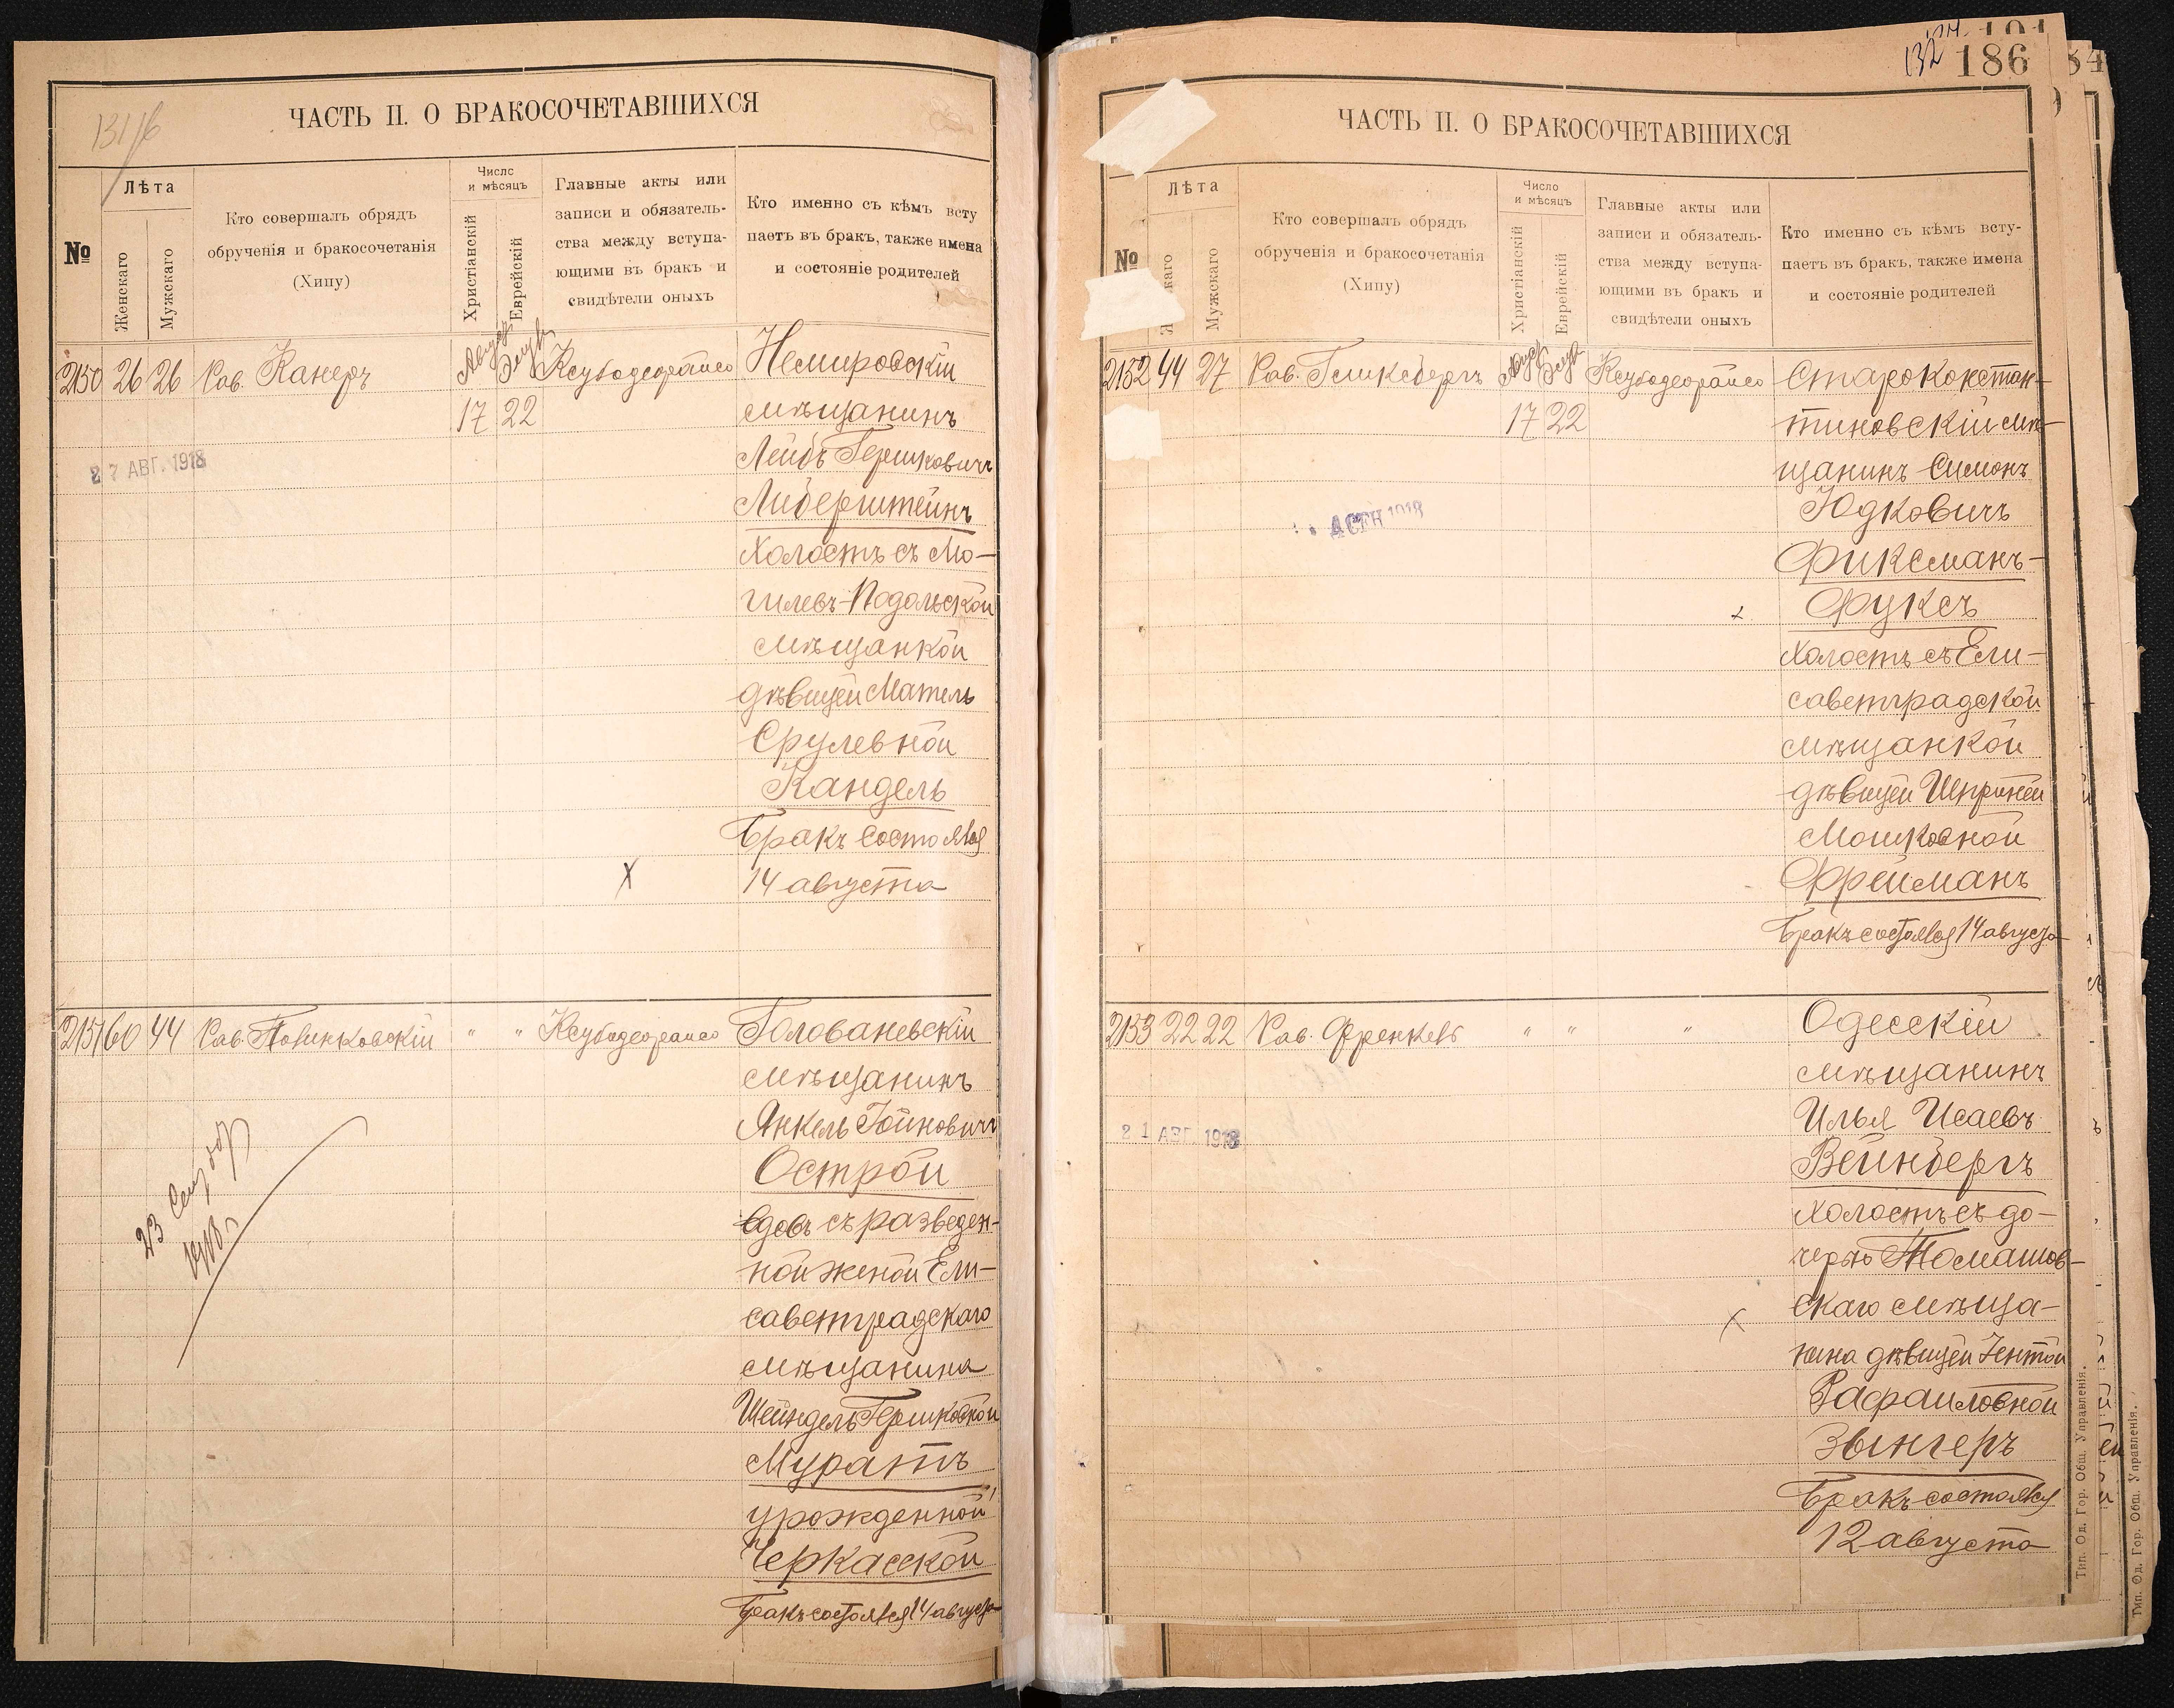 131 /б
ЧАСТЬ II. О БРАКОСОЧЕТАВШИХСЯ
№
Лѣта
Женскаго
Мужскаго
Кто совершалъ обрядъ
обрученія и бракосочетанія
(Хипу)
Число
и мѣсяцъ
Христіанскій
Еврейскій
Главные акты или
записи и обязатель-
ства между вступа-
ющими въ бракъ и
свидѣтели оныхъ
Кто именно съ кѣмъ всту
паетъ въ бракъ, также имена
и состояніе родителей
2150 26 26 Рав. Канеръ Август Элулъ Немировскій
17 22 мѣщанинъ
Лейбъ Гершковичъ
27 АВГ. 1918
Либерштейнъ
холостъ съ Мо-
гилевъ-Подольской
мѣщанкой
дѣвицей Матель
Срулевной
Кандель
Бракъ состоялся
X 14 августа
2151 60 44 Рав. " " Голованевскій
мѣщанинъ
Янкель Гойновичъ
Острой
вдовъ съ разведен-
ной женой Ели-
саветградскаго
мѣщанина
Шейндель Гершковной
Муратъ
урожденной
Черкасской
Бракъ состоялся 14 августа
23
1918 г.
132 186
ЧАСТЬ II. О БРАКОСОЧЕТАВШИХСЯ
№
Лѣта
Мужскаго
Кто совершалъ обрядъ
обрученія и бракосочетанія
(Хипу)
Число
и мѣсяцъ
Христіанскій
Еврейскій
Главные акты или
записи и обязатель-
ства между вступа-
ющими въ бракъ и
свидѣтели оныхъ
Кто именно съ кѣмъ всту-
паетъ въ бракъ, также имена
и состояніе родителей
2152 44 27 Рав. Гликсбергъ Август Элулъ Староконстан-
17 22 тиновскій мѣ-
щанинъ Симонъ
Юдковичъ
4 СЕН 1918
Фиксманъ-
Фуксъ
холостъ съ Ели-
саветградской
мѣщанкой
дѣвицей Шпринцей
Мошковной
Фрейманъ
Бракъ состоялся 14 августа
2153 22 22 Рав. Френкель " " " Одесскій
мѣщанинъ
Илья Исаевъ
21 АВГ. 1918
Вейнбергъ
холостъ съ до-
черью Томашов-
скаго мѣща-
X
нина дѣвицей Гентой
Рафаиловной
Зынгеръ
Бракъ состоялся
12 августа
Тип. Од. Гор. Общ. Управленія.
Тип. Од. Гор. Общ. Управленія.